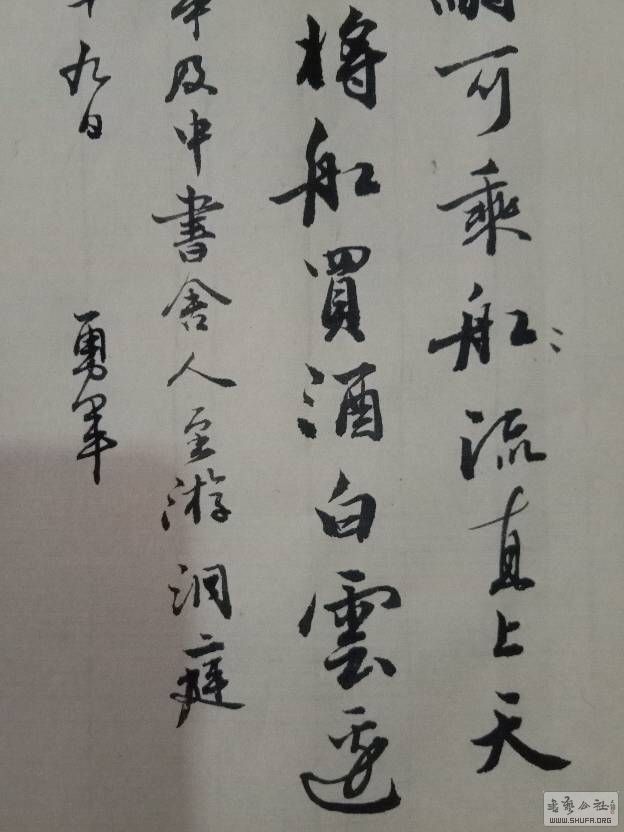 可乘船流直上天
將船買酒白雲邊
及中書舍人至游洞庭
九日 勇軍
書藝公社
WWW.SHUFA.ORG